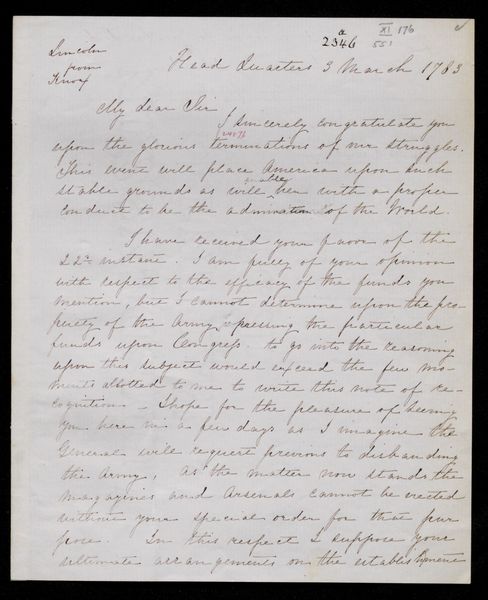 a
2346
XI 176
551
Lincoln
from
Knox
Head Quarters 3 March 1783
My dear Sir
I sincerely congratulate you
upon the glorious terminations of our struggles.
This event will place America upon such
stable grounds as will enable her with a proper
conduct to be the admiration of the World.
I have received your favor of the
22d instant. I am fully of your opinion
with respect to the efficacy of the funds you
mention, but I cannot determine upon the pro
priety of the Army pressing the particular
funds upon Congress. to go into the reasoning
upon this subject would exceed the few mo-
ments allotted to me to write this note of re-
cognition – I hope for the pleasure of seeing
you here in a few days as I imagine the
General will request previous to disbanding
the Army, As the matter now stands the
magazines and Arsenals cannot be erected
without your special order for that pur
pose. In this respect I suppose your
ultimate arrangements on the establishment